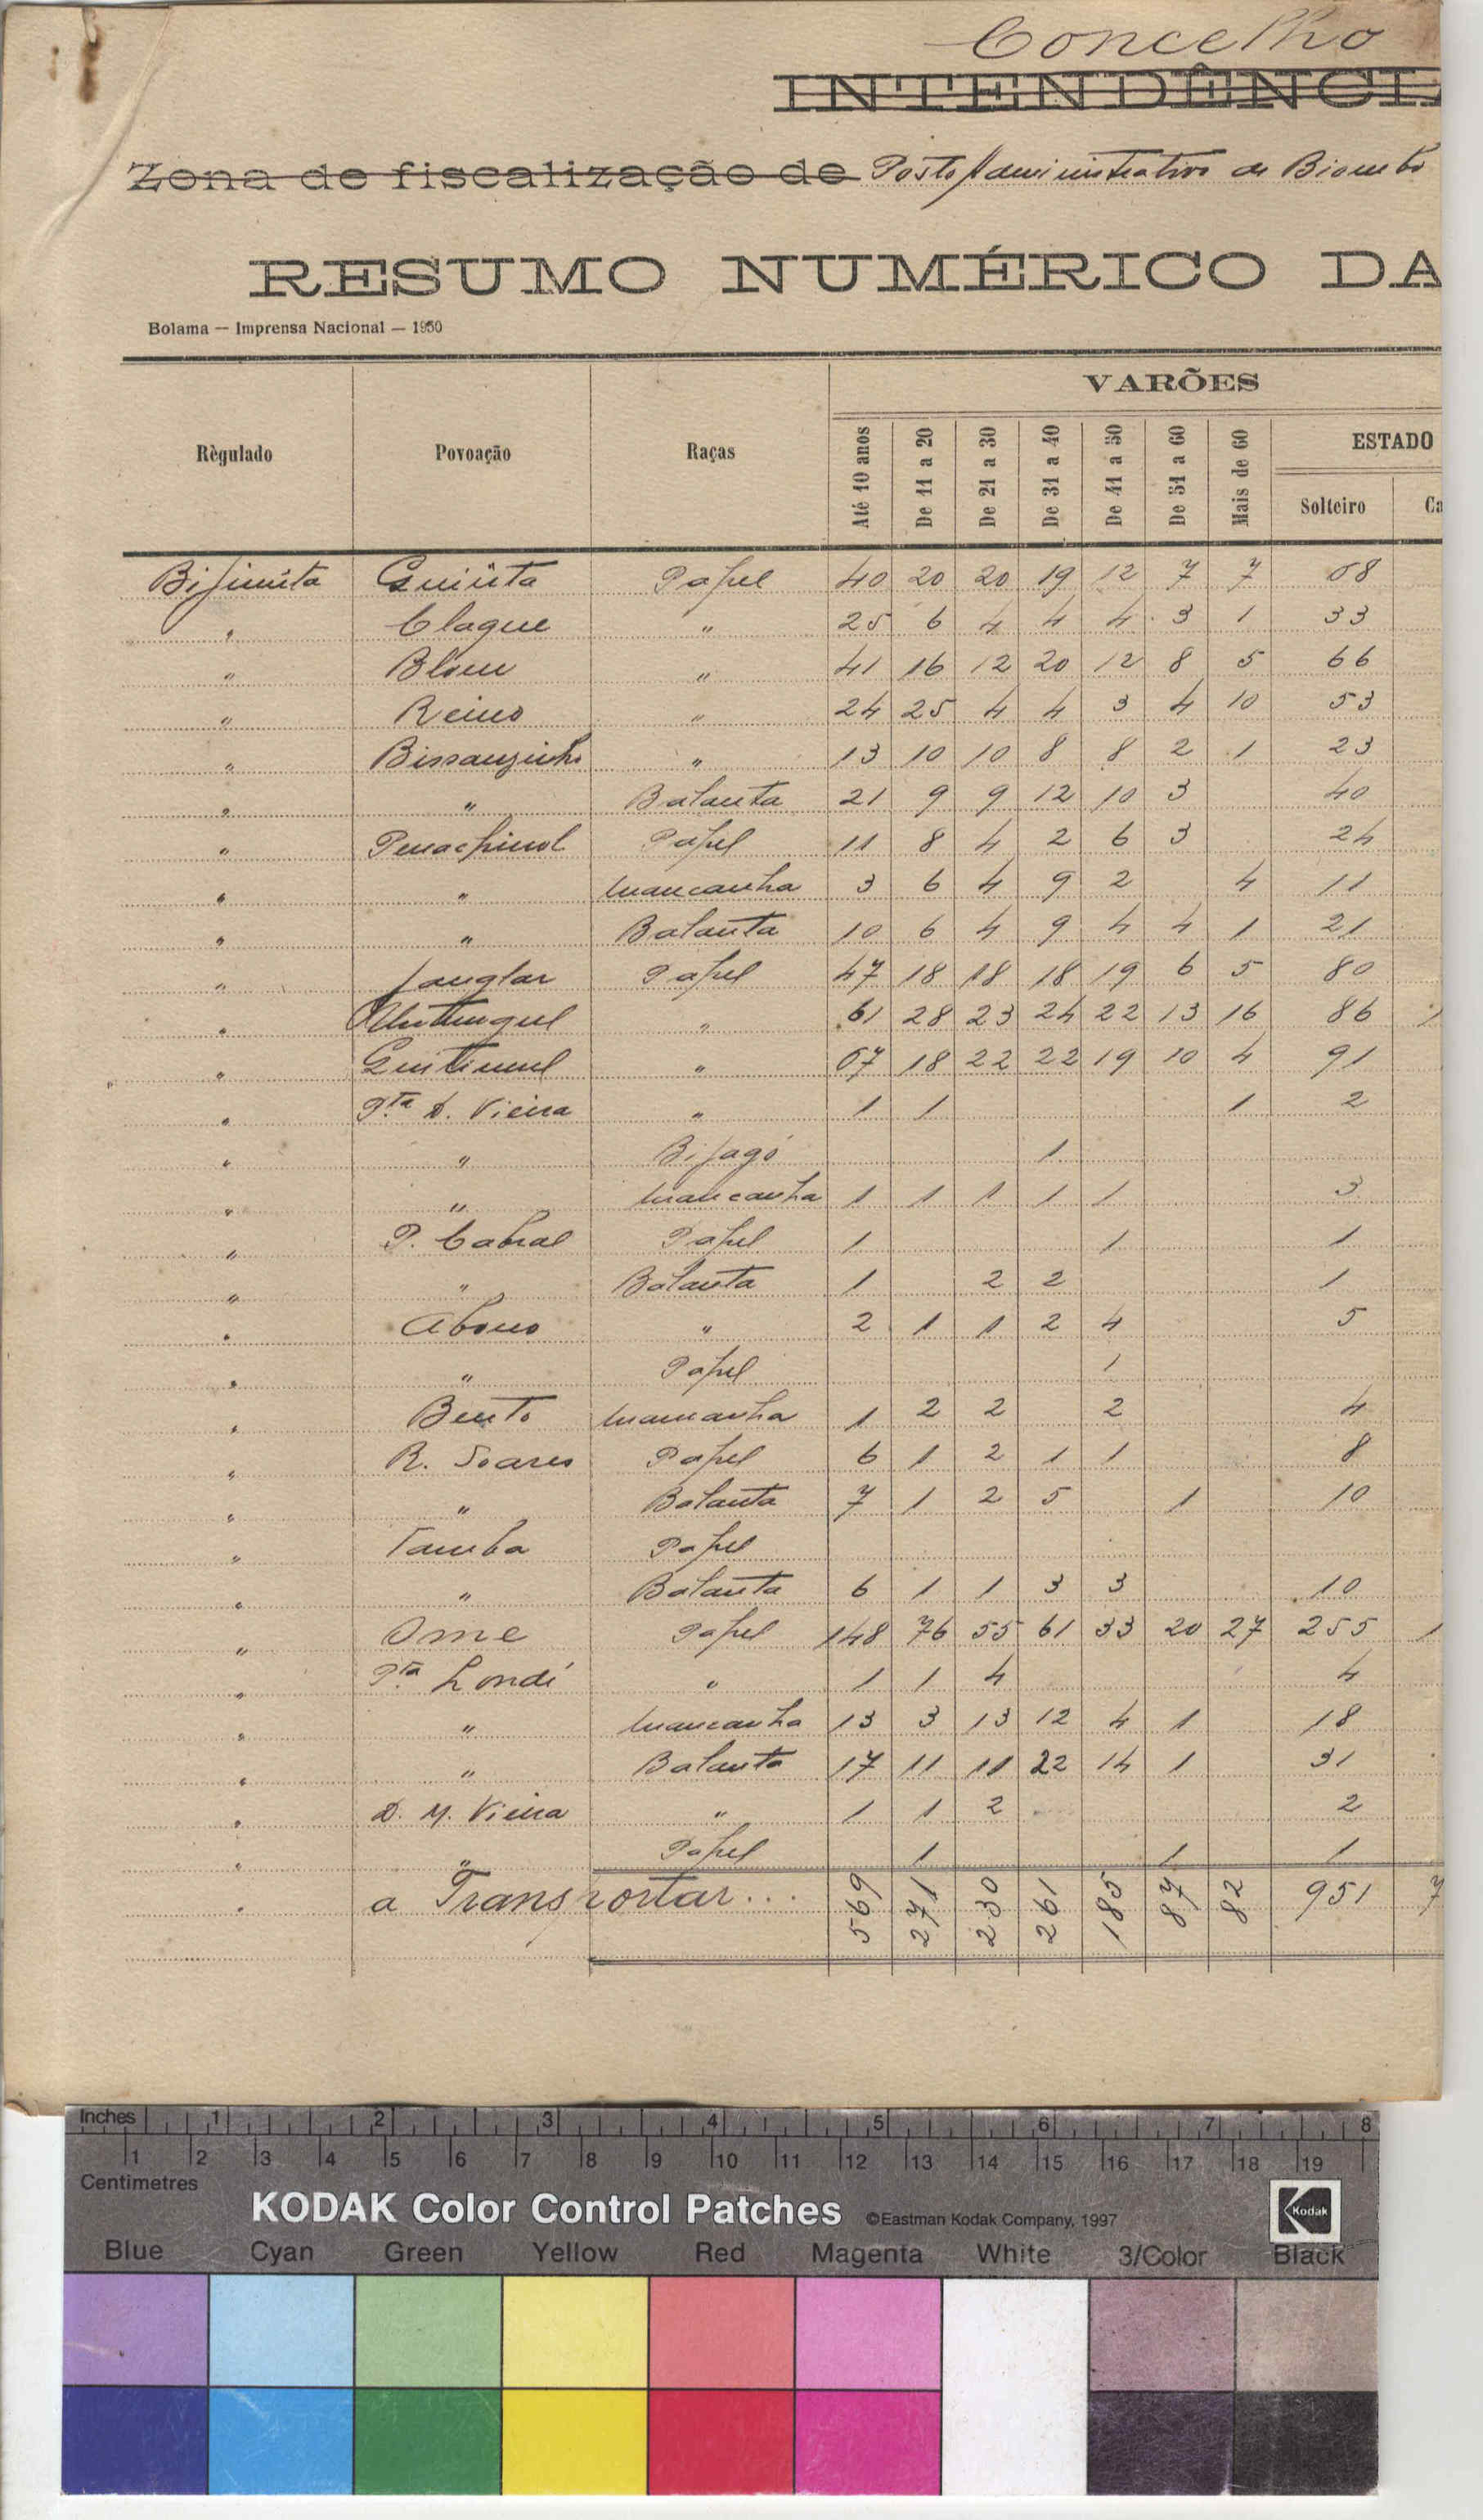 Concelho
INTENDÊNCI
Zona de fiscalização de Posto Administrativo de Biombo
RESUMO NUMÉRICO DA
Bolama — Imprensa Nacional — 1950
VARÕES
Règulado Povoação Raças Até 10 anos De 11 a 20 De 21 a 30 De 31 a 40 De 41 a 50 De 51 a 60 Mais de 60 ESTADO
Solteiro Ca
Bijimita Papel 40 20 20 19 12 7 7 68
" Claque " 25 6 4 4 4 3 1 33
" Blom " 41 16 12 20 12 8 5 66
" Reino " 24 25 4 4 3 4 10 53
" Bissauzinho " 13 10 10 8 8 2 1 23
" " Balanta 21 9 9 12 10 3 40
" Papel 11 8 4 2 6 3 24
" " Mancanha 3 6 4 9 2 4 11
" " Balanta 10 6 4 9 4 4 1 21
" Janglar Papel 47 18 18 18 19 6 5 80
" " 61 28 23 24 22 13 16 86
" " 67 18 22 22 19 10 4 91
" Pta D. Vieira " 1 1 1 2
" " Bijagó 1
" " Mancanha 1 1 1 1 1 3
" P. Cabral Papel 1 1 1
" " Balanta 1 2 2 1
" Abono " 2 1 1 2 4 5
" " Papel 1
" Bento Mancanha 1 2 2 2 4
" R. Soares Papel 6 1 2 1 1 8
" " Balanta 7 1 2 5 1 10
" Tamba Papel
" " Balanta 6 1 1 3 3 10
" Ome Papel 148 76 55 61 33 20 27 255 1
" Pta Londi " 1 1 4 4
" " Mancanha 13 3 13 12 4 1 18
" " Balanta 17 11 11 22 14 1 31
" D. M. Vieira " 1 1 2 2
" " Papel 1 1 1
" a Transportar... 569 271 230 261 185 87 82 951 7
Inches 1 2 3 4 5 6 7 8
1 2 3 4 5 6 7 8 9 10 11 12 13 14 15 16 17 18 19
Centimetres
KODAK Color Control Patches ©Eastman Kodak Company, 1997 Kodak
Blue Cyan Green Yellow Red Magenta White 3/Color Black